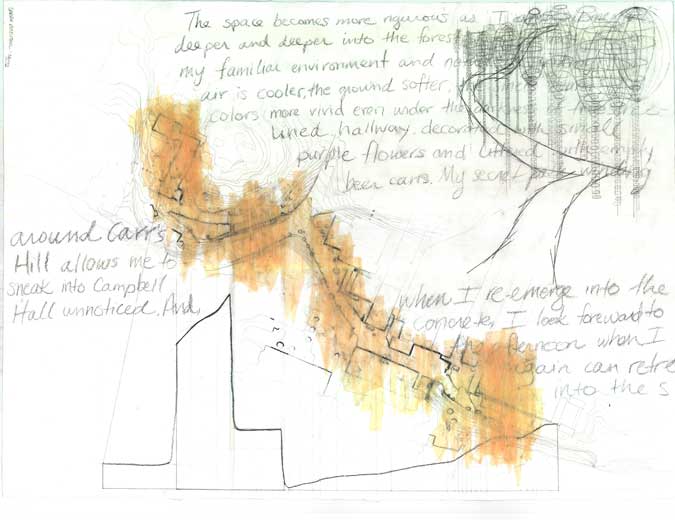 The space becomes more rigurous as I
deeper and deeper into the forest
my familiar environment and
air is cooler, the ground softer, the
colors more vivid even under the of the
lined hallway. decorated with small
purple flowers and littered with empty
beer cans. My secret path winding
around Carr's
Hill allows me to
sneak into Campbell
Hall unnoticed. And,
when I re-emerge into the
concrete, I look forward to
the afternoon when I
again can retre
into the s